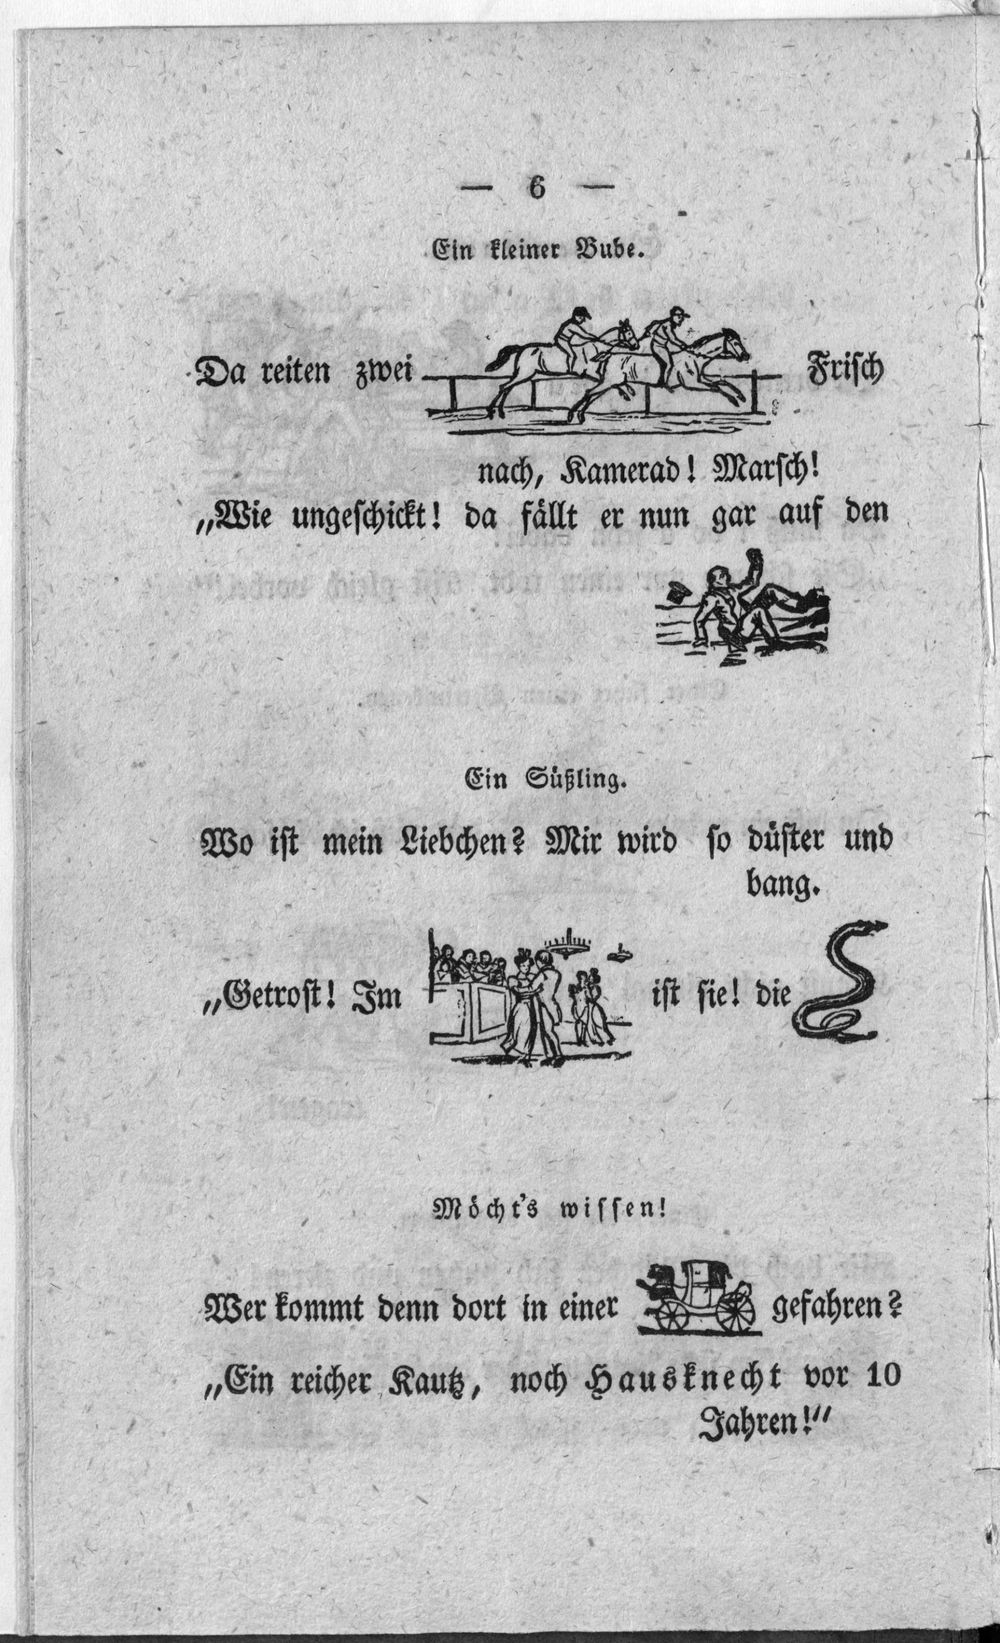 — 6 —
Ein kleiner Bube.
Da reiten zwei Frisch
nach, Kamerad! Marsch!
„Wie ungeschickt! da fällt er nun gar auf den
Ein Süßling.
Wo ist mein Liebchen? Mir wird so düster und
bang.
„Getrost! Im ist sie! die
Möcht's wissen!
Wer kommt denn dort in einer gefahren?
„Ein reicher Kautz, noch Hausknecht vor 10
Jahren!“